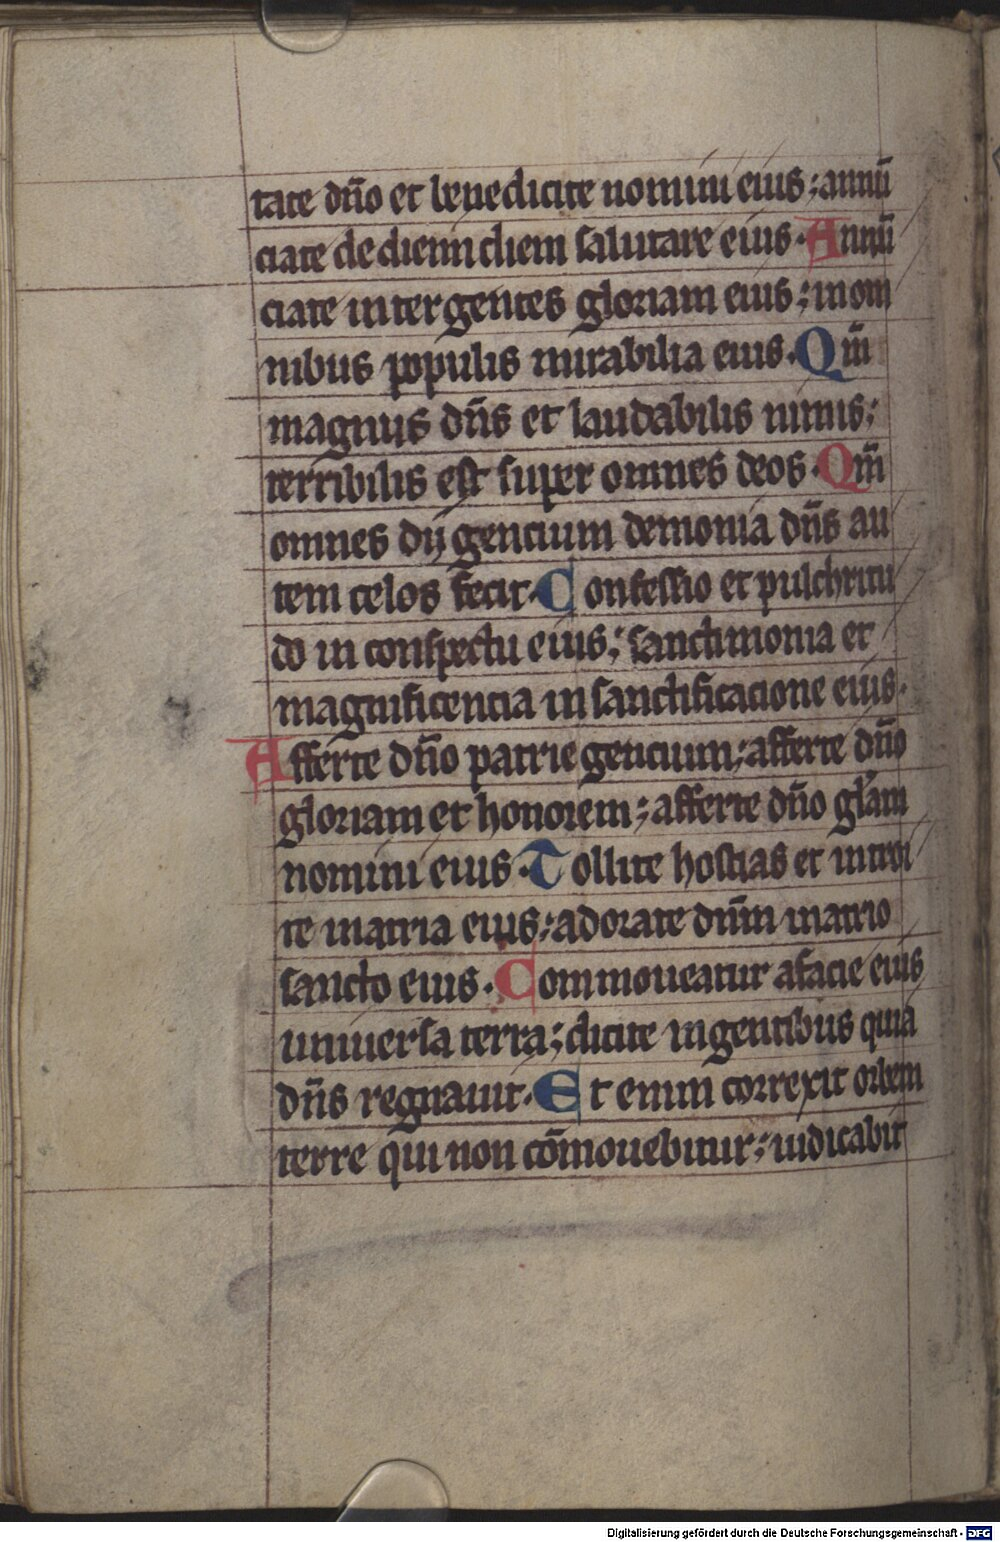 tate dn̄o et benedicite nomini eius ; annū
ciate de diem in diem salutare eius . Annū
ciate inter gentes gloriam eius ; in om
nibus populis mirabilia eius . Qm̄
magnus dn̄s et laudabilis nimis ;
terribilis est super omnes deos . Qm̄
omnes dij gencium demonia dn̄s au
tem celos fecit . Confessio et pulchritu
do in conspectu eius ; sanctimonia et
magnificencia in sanctificacione eius .
Afferte dn̄o patrie gencium ; afferte dn̄o
gloriam et honorem ; afferte dn̄o gl̄am
nomini eius . Tollite hostias et introi
te in atria eius ; adorate dn̄m in atrio
sancto eius . Commoueatur a facie eius
uniuersa terra ; dicite in gentibus quia
dn̄s regnauit . Et enim correxit orbem
terre qui non cōmouebitur ; iudicabit
Digitalisierung gefördert durch die Deutsche Forschungsgemeinschaft - DFG